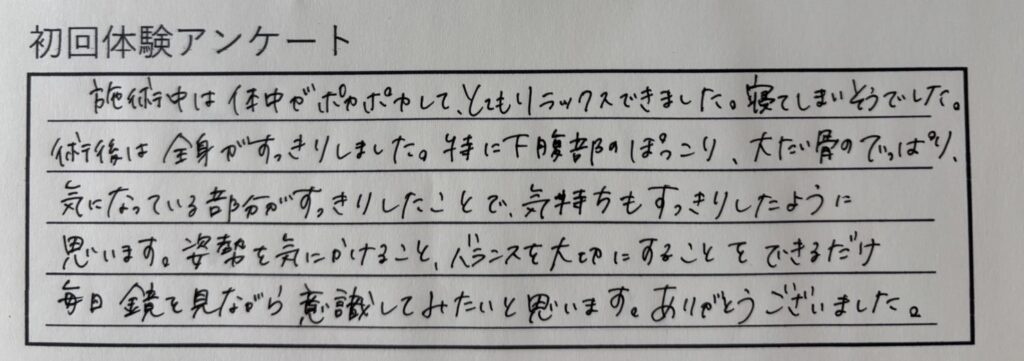 初回体験アンケート
施術中は体中がポカポカして、とてもリラックスできました。寝てしまいそうでした。
術後は全身がすっきりしました。特に下腹部のぽっこり、大たい骨のでっぱり、
気になっている部分がすっきりしたことで、気持ちもすっきりしたように
思います。姿勢を気にかけること、バランスを大切にすることをできるだけ
毎日鏡を見ながら意識してみたいと思います。ありがとうございました。